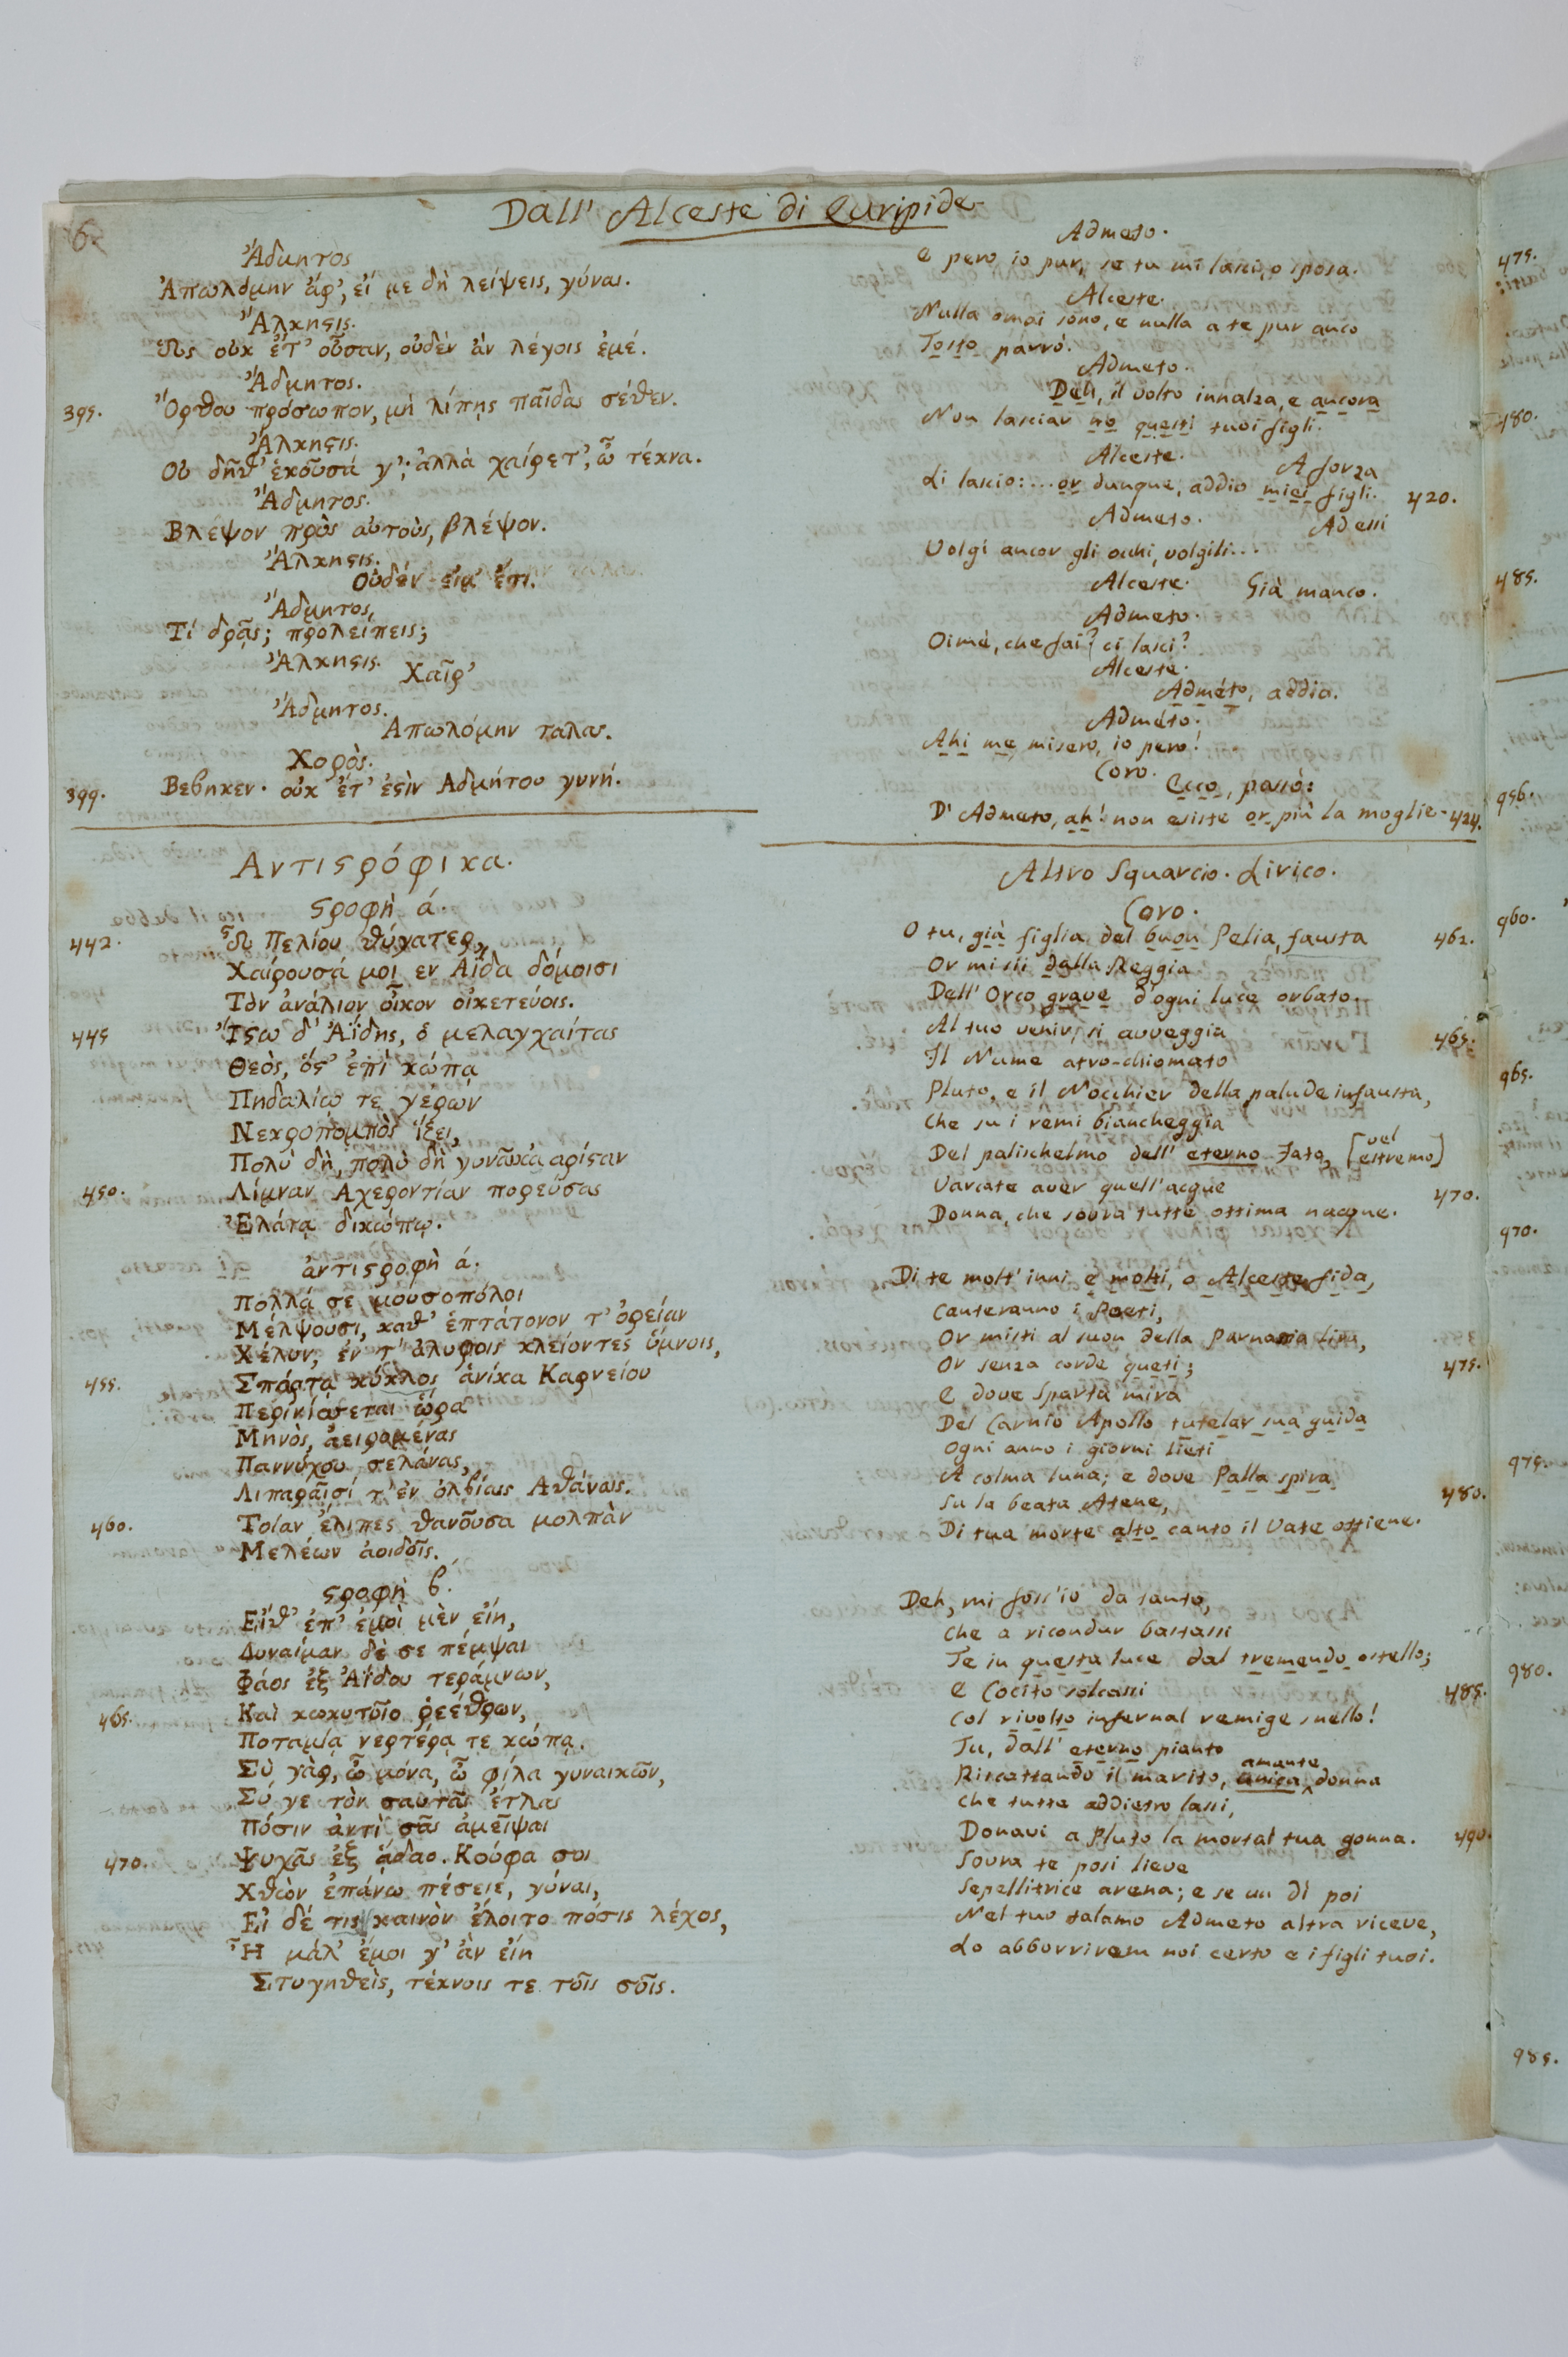 6
Dall' Alceste di Euripide
Ἄδμητος
Ἀπωλόμην ἄρ', εἴ με δὴ λείψεις, γύναι.
Ἄλκηϛις.
Ὡς οὐκ ἔτ' οὖσαν, οὐδὲν ἂν λέγοις ἐμέ.
Ἄδμητος.
395. Ὄρθου πρόσωπον, μὴ λίπῃς παῖδας σέθεν.
Ἄλκηϛις.
Οὐ δῆθ' ἑκοῦσά γ'; ἀλλὰ χαίρετ', ὦ τέκνα.
Ἄδμητος.
Βλέψον πρὸς αὐτοὺς, βλέψον.
Ἄλκηϛις.
Οὐδέν εἰμ' ἔτι.
Ἄδμητος.
Τί δρᾷς; προλείπεις;
Ἄλκηϛις.
Χαῖρ'
Ἄδμητος.
Απωλόμην ταλας.
Χορὸς.
399. Βεβηκεν· οὐκ ἔτ' ἐϛὶν Αδμήτου γυνή.
Αντιϛρόφικα.
ϛροφὴ ά.
442. Ὦ Πελίου θύγατερ,
Χαίρουσά μοι εν Αΐδα δόμοισι
Τὸν ἀνάλιον οἶκον οἰκετεύοις.
445 Ἴϛω δ' Ἀΐδης, ὁ μελαγχαίτας
Θεὸς, ὅς' ἐπὶ κώπᾳ
Πηδαλίῳ τε γερων
Νεκροπομπὸς ἵζει,
Πολὺ δὴ, πολὺ δὴ γυναῖκα αρίϛαν
450. Λίμναν Αχεροντίαν πορεύσας
Ἐλάτᾳ δικώπῳ.
ἀντιϛροφὴ ά.
Πολλά σε μουσοπόλοι
Μέλψουσι, καθ' ἑπτάτονον τ' ὀρείαν
Χέλυν, ἐν τ' ἀλυροις κλείοντες ὕμνοις,
455. Σπάρτᾳ κύκλος ἁνίκα Καρνείου
Περινίσσεται ὥρα
Μηνὸς, ἀειρομένας
Παννύχου σελάνας,
Λιπαραῖσί τ' ἐν ὀλβίαις Αθάναις.
460. Τοίαν ἔλιπες θανοῦσα μολπὰν
Μελέων ἀοιδοῖς.
ϛροφὴ β.
Εἴθ' ἐπ' ἐμοὶ μὲν εἴη,
Δυναίμαν δέ σε πέμψαι
Φάος ἐξ Ἀΐδου τεράμνων,
465. Καὶ κωκυτοῖο ῥεέθρων,
Ποταμίᾳ νερτέρᾳ τε κώπᾳ.
Σὺ γὰρ, ὦ μόνα, ὦ φίλα γυναικῶν,
Σύ γε τὸν σαυτᾶς ἔτλας
Πόσιν ἀντὶ σᾶς ἀμεῖψαι
470. Ψυχᾶς ἐξ ᾅδαο. Κούφα σοι
Χθὼν ἐπάνω πέσειε, γύναι,
Εἰ δέ τις καινὸν ἕλοιτο πόσις λέχος,
Ἦ μάλ' ἐμοι γ' ἂν εἴη
Στυγηθεὶς, τέκνοις τε τοῖς σοῖς.
Admeto.
E pero io pur, se tu mi lasci, o sposa.
Alceste.
Nulla omai sono, e nulla a te pur anco
Tosto parrò.
Admeto.
Deh, il volto innalza, e ancora
Non lasciar no questi tuoi figli.
Alceste.
A forza
Li lascio:... or dunque, addio miei figli. 420.
Admeto.
Ad essi
Volgi ancor gli occhi, volgili...
Alceste. Già manco.
Admeto.
Oimè, che fai? ci lasci?
Alceste.
Admèto, addio.
Admèto.
Ahi me misero, io pero!
Coro.
Ecco, passò:
D' Admeto, ah! non esiste or più la moglie. 424.
Altro Squarcio. Lirico.
Coro.
O tu, già figlia del buon Pelia, fausta 462.
Or mi sii dalla Reggia
Dell' Orco grave d'ogni luce orbato.
Al tuo venir, si avveggia 465.
Il Nume atro-chiomato
Pluto, e il Nocchier della palude infausta,
Che su i remi biancheggia
Del palischelmo dell' eterno Fato, [vel estremo]
Varcate aver quell' acque 470.
Donna, che sovra tutte ottima nacque.
Di te molt' inni e molti, o Alceste fida,
Canteranno i Poeti,
Or misti al suon della Parnassia lira,
Or senza corde queti; 475.
E dove Sparta mira
Del Carnio Apollo tutelar sua guida
Ogni anno i giorni lieti
A colma luna; e dove Palla spira
Su la beata Atene, 480.
Di tua morte alto canto il Vate ottiene.
Deh, mi foss'io da tanto,
Che a ricondur bastassi
Te in questa luce dal tremendo ostello;
E Cocito solcassi 485.
Col rivolto infernal remige snello!
Tu, dall' eterno pianto
Riscattando il marito, unica amante donna
Che tutte addietro lassi,
Donavi a Pluto la mortal tua gonna. 490.
Sovra te posi lieve
Sepellitrice arena; e se un dì poi
Nel tuo talamo Admeto altra riceve,
Lo abborrirem noi certo e i figli tuoi.
475.
480.
485.
956.
960.
965.
970.
975.
980.
985.